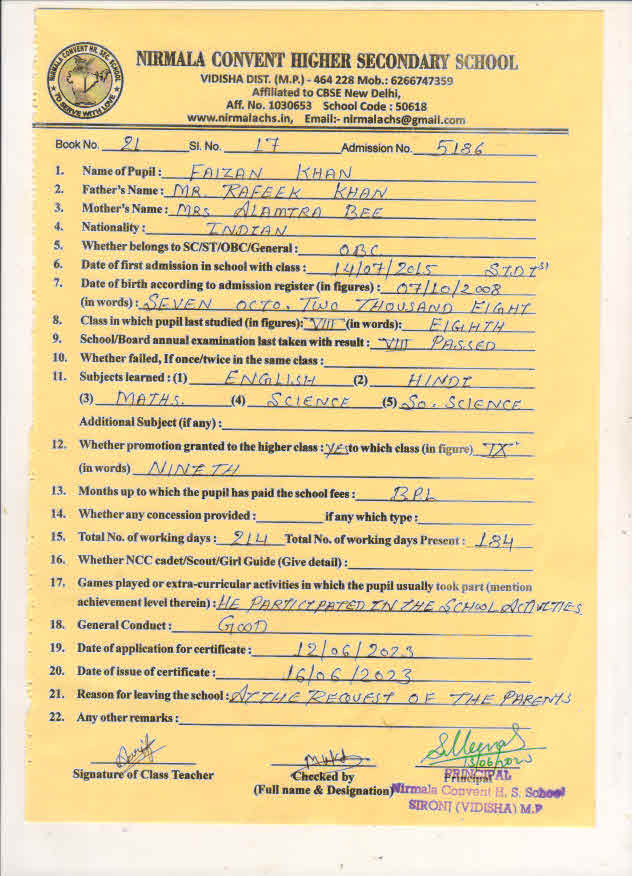 NIRMALA CONVENT HR. SEC. SCHOOL
TO SERVE WITH LOVE
NIRMALA CONVENT HIGHER SECONDARY SCHOOL
VIDISHA DIST. (M.P.) - 464 228 Mob.: 6266747359
Affiliated to CBSE New Delhi,
Aff. No. 1030653 School Code : 50618
www.nirmalachs.in, Email:- nirmalachs@gmail.com
Book No. 21 Sl. No. 17 Admission No. 5186
1. Name of Pupil : FAIZAN KHAN
2. Father's Name : MR. RAFEEK KHAN
3. Mother's Name : MRS ALAMTRA BEE
4. Nationality : INDIAN
5. Whether belongs to SC/ST/OBC/General : OBC
6. Date of first admission in school with class : 14/07/2015 STD I st
7. Date of birth according to admission register (in figures) : 07/10/2008
(in words) : SEVEN OCTO. TWO THOUSAND EIGHT
8. Class in which pupil last studied (in figures): VIII (in words): EIGHTH
9. School/Board annual examination last taken with result : VIII PASSED
10. Whether failed, If once/twice in the same class :
11. Subjects learned : (1) ENGLISH (2) HINDI
(3) MATHS. (4) SCIENCE (5) SO. SCIENCE
Additional Subject (if any) :
12. Whether promotion granted to the higher class : YES to which class (in figure) IX
(in words) NINETH
13. Months up to which the pupil has paid the school fees : BPL
14. Whether any concession provided : if any which type :
15. Total No. of working days : 214 Total No. of working days Present : 184
16. Whether NCC cadet/Scout/Girl Guide (Give detail) :
17. Games played or extra-curricular activities in which the pupil usually took part (mention
achievement level therein) : HE PARTICIPATED IN THE SCHOOL ACTIVITIES
18. General Conduct : GOOD
19. Date of application for certificate : 12/06/2023
20. Date of issue of certificate : 16/06/2023
21. Reason for leaving the school : AT THE REQUEST OF THE PARENTS
22. Any other remarks :
Signature of Class Teacher
Checked by
(Full name & Designation)
Principal
PRINCIPAL
Nirmala Convent H. S. School
SIRONJ (VIDISHA) M.P